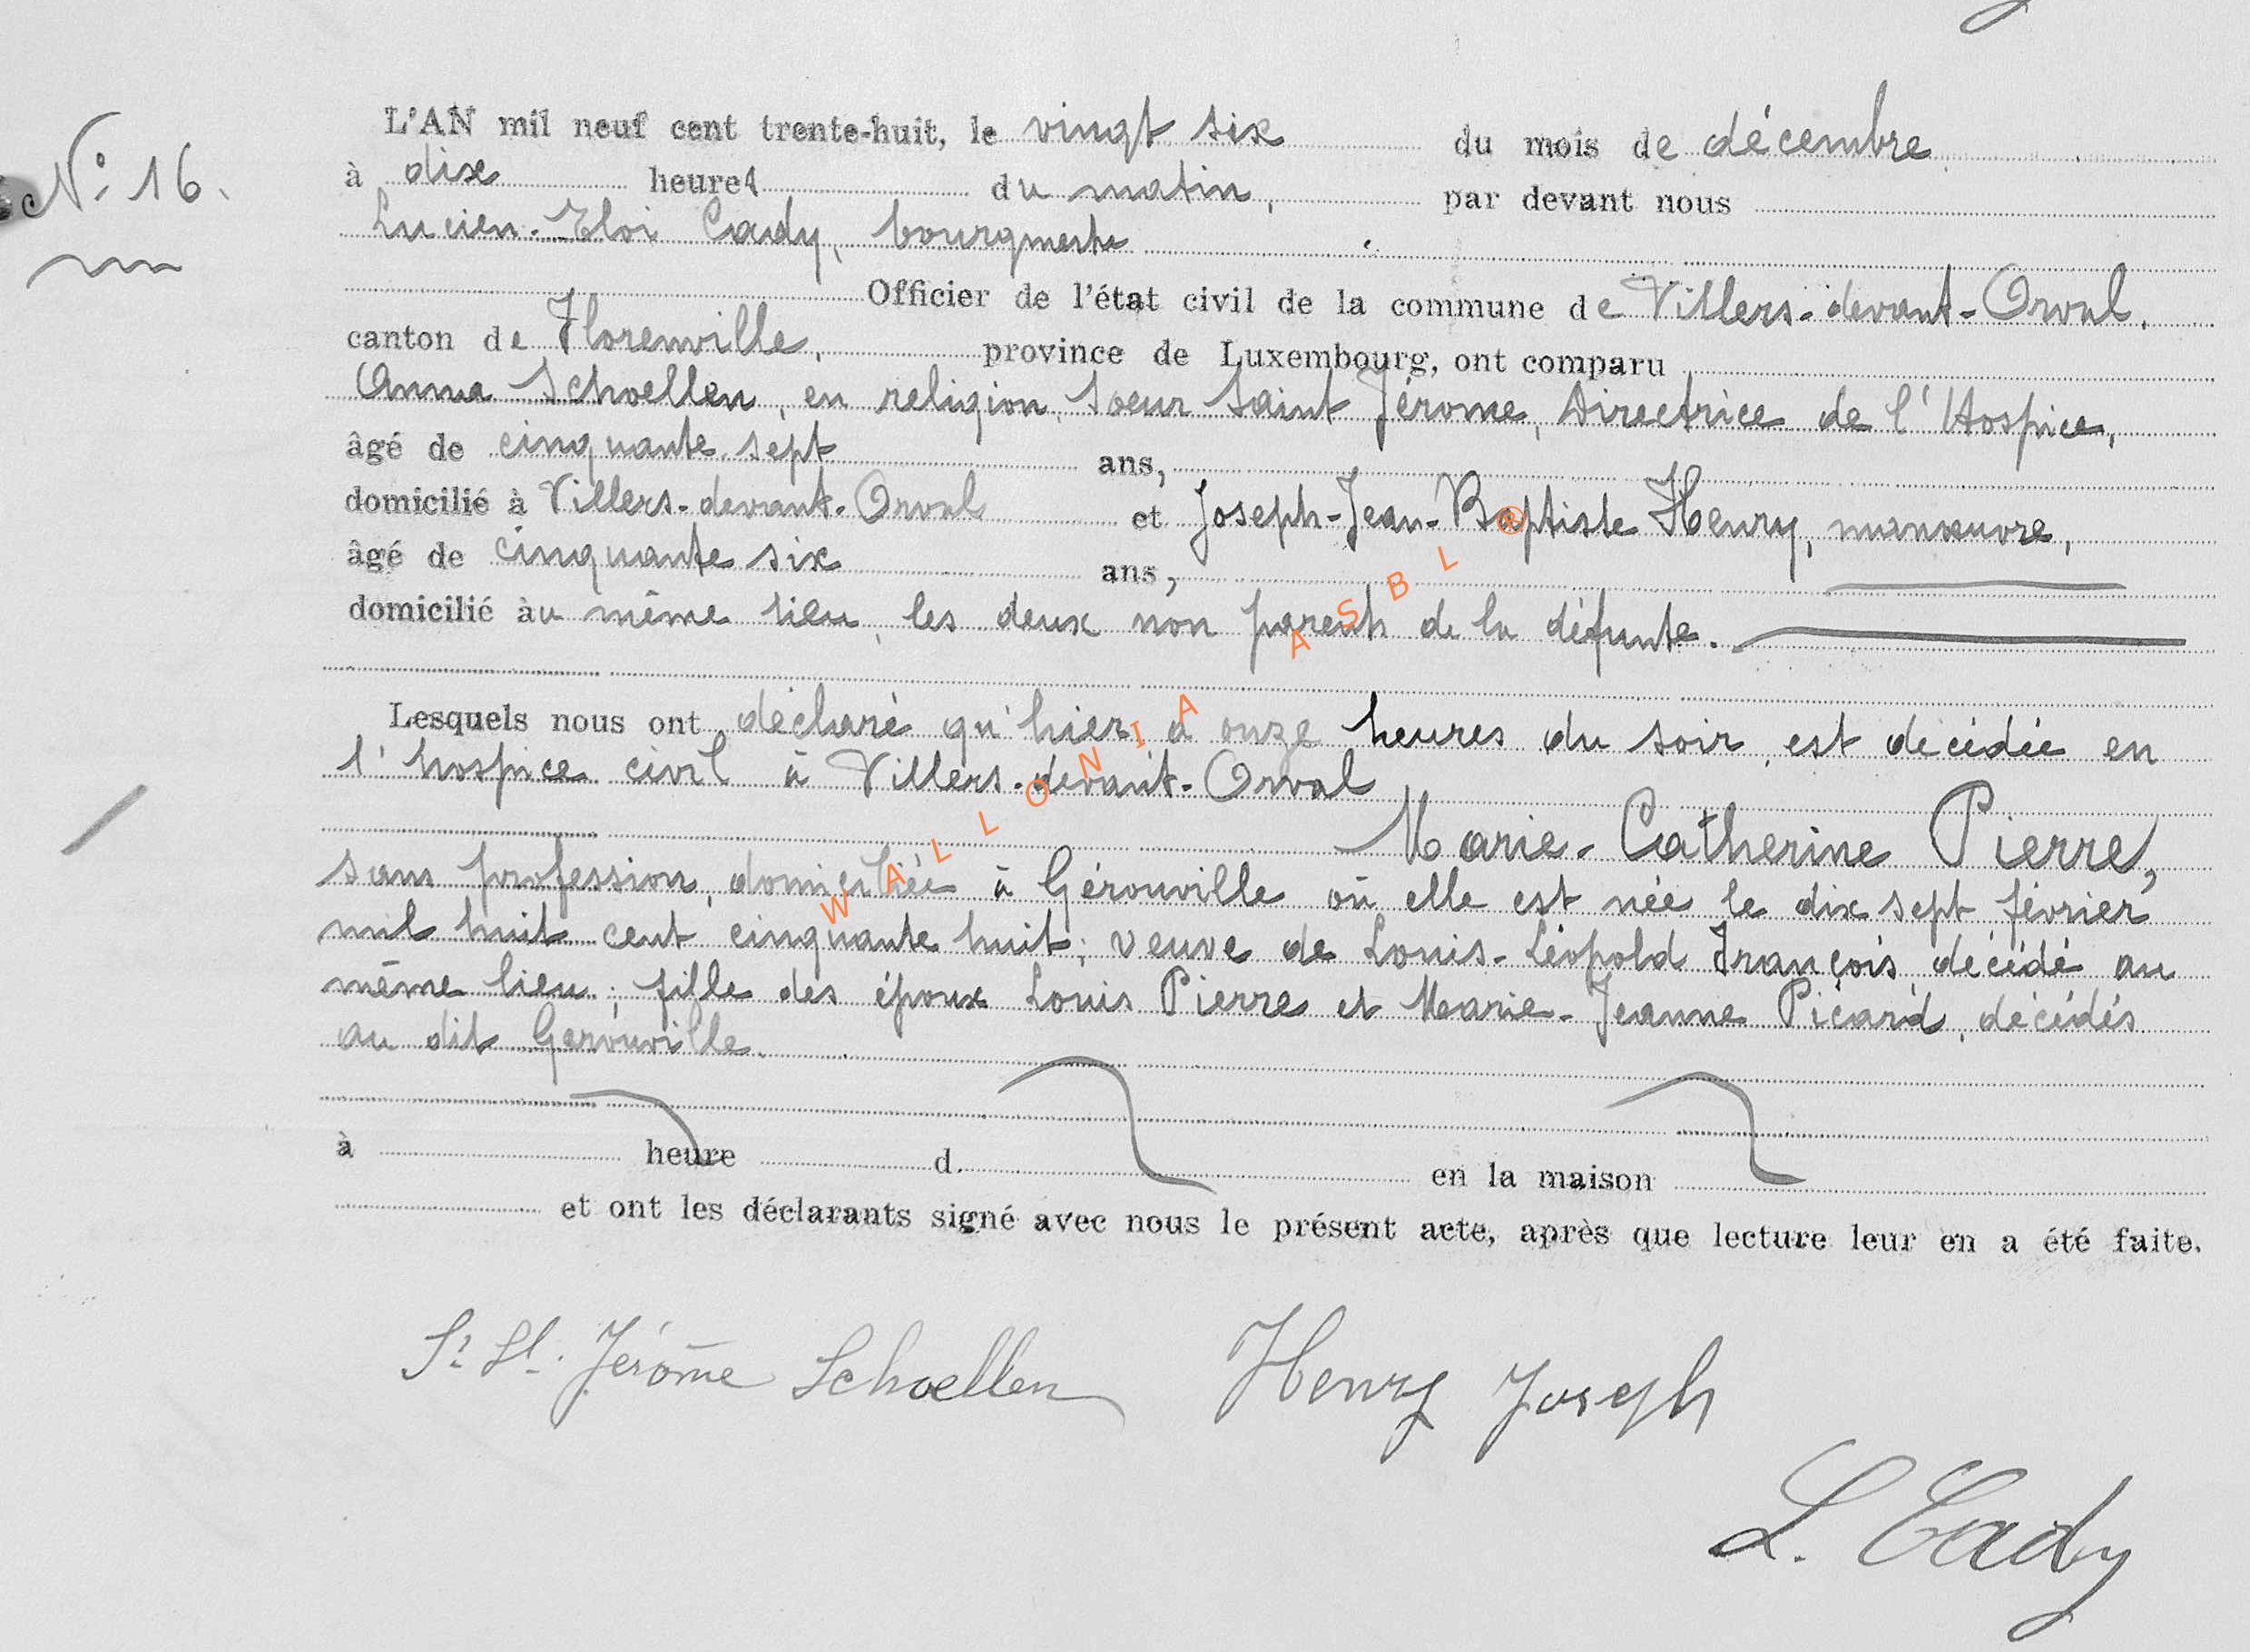 N° 16.
L'AN mil neuf cent trente-huit, le vingt six du mois de décembre
à dix heures du matin, par devant nous
Lucien-Eloi Cady, bourgmestre
Officier de l'état civil de la commune de Villers-devant-Orval,
canton de Florenville, province de Luxembourg, ont comparu
Anna Schoellen, en religion, Soeur Saint Jérome, Directrice de l'Hospice,
âgé de cinquante sept ans,
domicilié à Villers-devant-Orval et Joseph-Jean-Baptiste Henry, manœuvre,
âgé de cinquante six ans,
domicilié àu même lieu, les deux non parents de la défunte.
Lesquels nous ont déclaré qu'hier à onze heures du soir, est décédée en
l'hospice civil à Villers-devant-Orval
Marie-Catherine Pierre,
sans profession, domiciliée à Gérouville où elle est née le dix sept février
mil huit cent cinquante huit; veuve de Louis-Léopold François, décédé au
même lieu; fille des époux Louis Pierre et Marie-Jeanne Picard, décédés
au dit Gérouville.
à heure d. en la maison
et ont les déclarants signé avec nous le présent acte, après que lecture leur en a été faite.
Sr St. Jérôme Schoellen Henry Joseph
L. Cady
WALLONIA ASBL ®